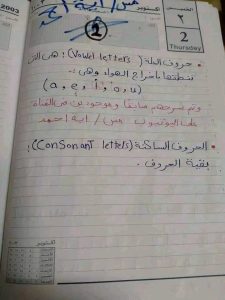 2003
اكتوبر
الخميس
٢
2
Thursday
مس / اية أحمد
1
• حروف العلة (Vowel letters): هى التى
ننطقها بإخراج الهواء وهى :-
(a, e, i, o, u)
وتم شرحهم سابقاً وموجودين فى القناة
على اليوتيوب مس / اية احمد
• الحروف الساكنة (Consonant letters):
بقية الحروف.